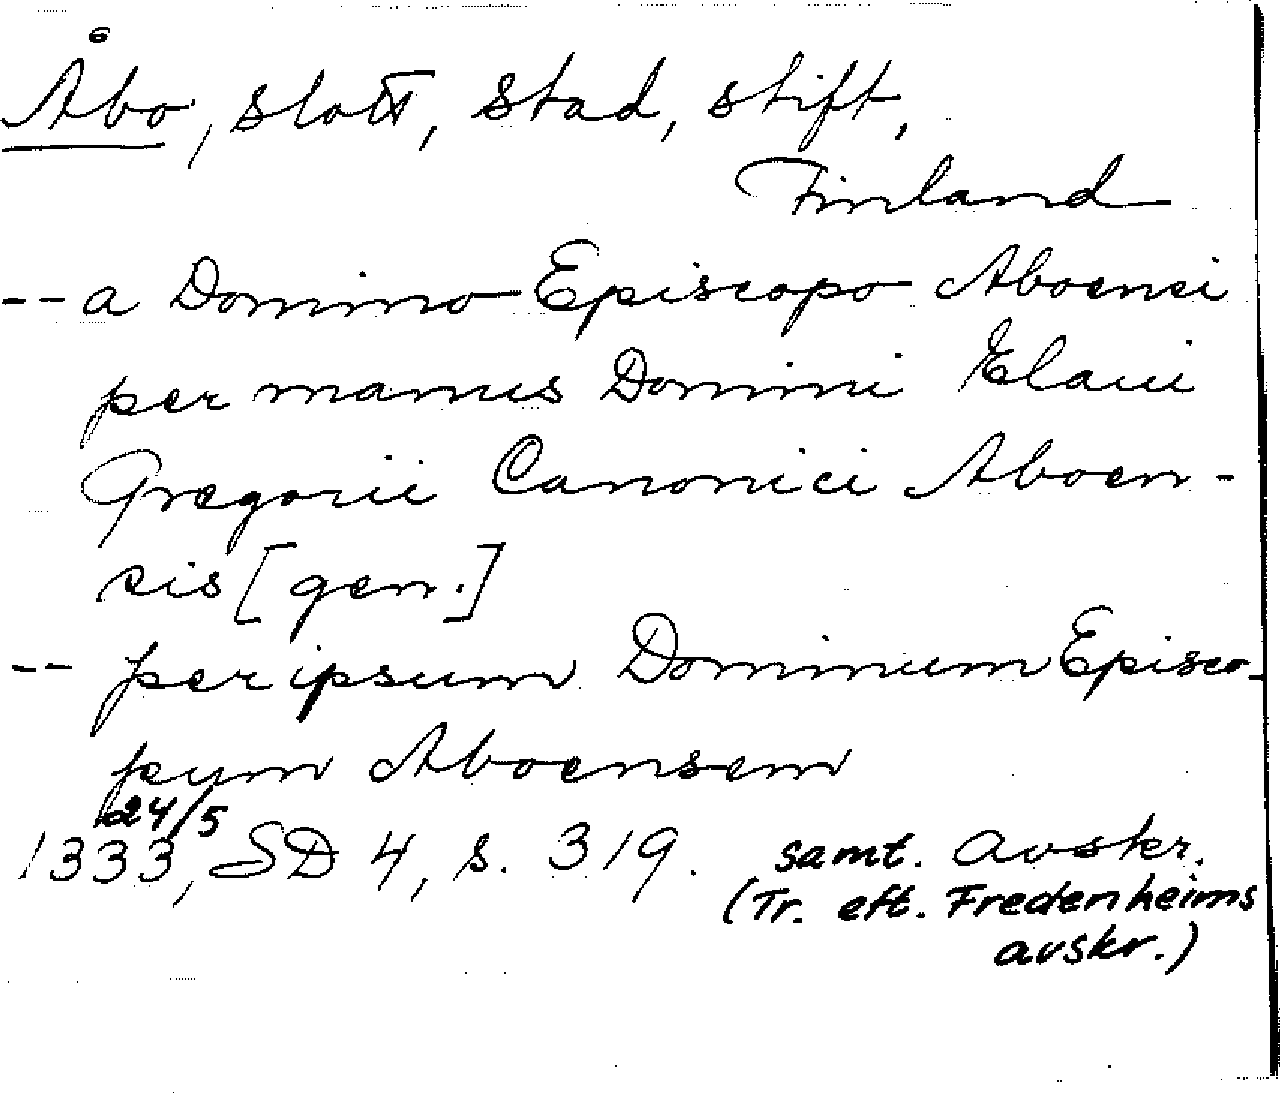 Åbo, slott, stad, stift,
Finland
-- a Domino Episcopo Aboensi
per manus Domini Elaui
Gregorii Canonici Aboen-
sis [gen.]
-- per ipsum Dominum Episco-
pum Aboensem
24/5
1333, SD 4, s. 319. samt. avskr.
(Tr. eft. Fredenheims
avskr.)